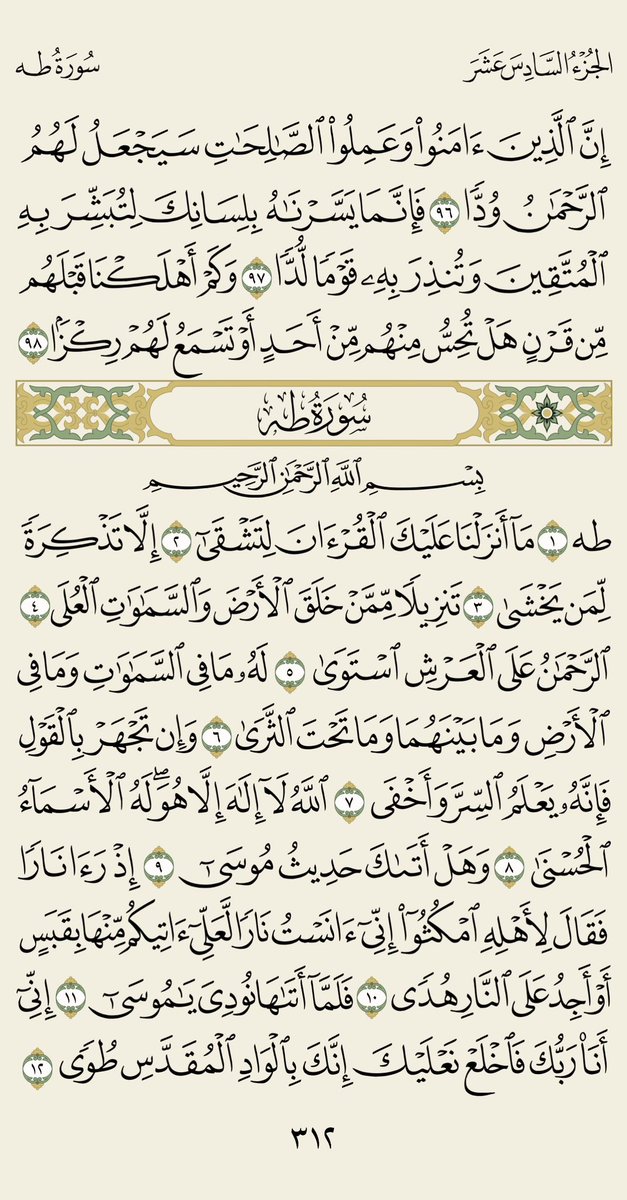 الجُزْءُ السَّادِسَ عَشَرَ
سُورَةُ طه
إِنَّ ٱلَّذِينَ ءَامَنُوا۟ وَعَمِلُوا۟ ٱلصَّـٰلِحَـٰتِ سَيَجْعَلُ لَهُمُ
ٱلرَّحْمَـٰنُ وُدًّا ٩٦ فَإِنَّمَا يَسَّرْنَـٰهُ بِلِسَانِكَ لِتُبَشِّرَ بِهِ
ٱلْمُتَّقِينَ وَتُنذِرَ بِهِۦ قَوْمًا لُّدًّا ٩٧ وَكَمْ أَهْلَكْنَا قَبْلَهُم
مِّن قَرْنٍ هَلْ تُحِسُّ مِنْهُم مِّنْ أَحَدٍ أَوْ تَسْمَعُ لَهُمْ رِكْزًۢا ٩٨
سُورَةُ طه
بِسْمِ ٱللَّهِ ٱلرَّحْمَـٰنِ ٱلرَّحِيمِ
طه ١ مَآ أَنزَلْنَا عَلَيْكَ ٱلْقُرْءَانَ لِتَشْقَىٰٓ ٢ إِلَّا تَذْكِرَةً
لِّمَن يَخْشَىٰ ٣ تَنزِيلًا مِّمَّنْ خَلَقَ ٱلْأَرْضَ وَٱلسَّمَـٰوَٰتِ ٱلْعُلَى ٤
ٱلرَّحْمَـٰنُ عَلَى ٱلْعَرْشِ ٱسْتَوَىٰ ٥ لَهُۥ مَا فِى ٱلسَّمَـٰوَٰتِ وَمَا فِى
ٱلْأَرْضِ وَمَا بَيْنَهُمَا وَمَا تَحْتَ ٱلثَّرَىٰ ٦ وَإِن تَجْهَرْ بِٱلْقَوْلِ
فَإِنَّهُۥ يَعْلَمُ ٱلسِّرَّ وَأَخْفَى ٧ ٱللَّهُ لَآ إِلَـٰهَ إِلَّا هُوَ ۖ لَهُ ٱلْأَسْمَآءُ
ٱلْحُسْنَىٰ ٨ وَهَلْ أَتَىٰكَ حَدِيثُ مُوسَىٰٓ ٩ إِذْ رَءَا نَارًا
فَقَالَ لِأَهْلِهِ ٱمْكُثُوٓا۟ إِنِّىٓ ءَانَسْتُ نَارًا لَّعَلِّىٓ ءَاتِيكُم مِّنْهَا بِقَبَسٍ
أَوْ أَجِدُ عَلَى ٱلنَّارِ هُدًى ١٠ فَلَمَّآ أَتَىٰهَا نُودِىَ يَـٰمُوسَىٰٓ ١١ إِنِّىٓ
أَنَا۠ رَبُّكَ فَٱخْلَعْ نَعْلَيْكَ إِنَّكَ بِٱلْوَادِ ٱلْمُقَدَّسِ طُوًى ١٢
٣١٢